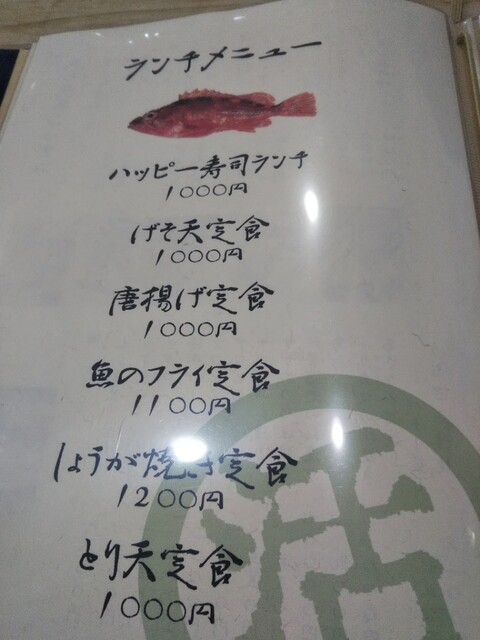 ランチメニュー
ハッピー寿司ランチ
1000円
げそ天定食
1000円
唐揚げ定食
1000円
魚のフライ定食
1100円
しょうが焼き定食
1200円
とり天定食
1000円
活